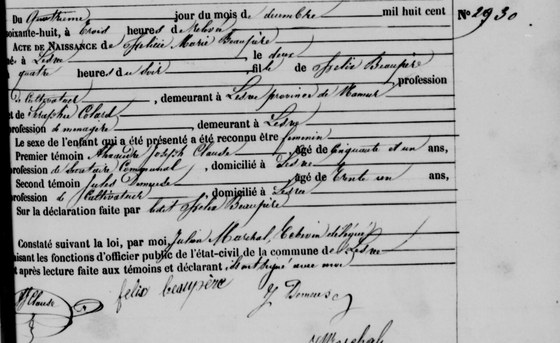 Du quatrième jour du mois de décembre mil huit cent
N° 2930
soixante-huit, à trois heures de relevée
ACTE DE NAISSANCE de Félicie Marie Beaupère
né à Lesve, le deux
quatre heures du soir, fil de Félix Beaupère
profession
de Cultivateur, demeurant à Lesve province de Namur
et de Colard
profession de menagère, demeurant à Lesve
Le sexe de l'enfant qui a été présenté a été reconnu être féminin
Premier témoin Alexandre Joseph Claude âgé de cinquante et un ans,
profession de Secrétaire Communal, domicilié à Lesve
Second témoin Jules âgé de trente un ans,
profession de Cultivateur domicilié à Lesve
Sur la déclaration faite par Félix Beaupère
Constaté suivant la loi, par moi, Julien Marchal, Echevin délégué
faisant les fonctions d'officier public de l'état-civil de la commune de Lesve
et après lecture faite aux témoins et déclarant, ils ont signé avec moi
felix beaupère
Claude
Marchal